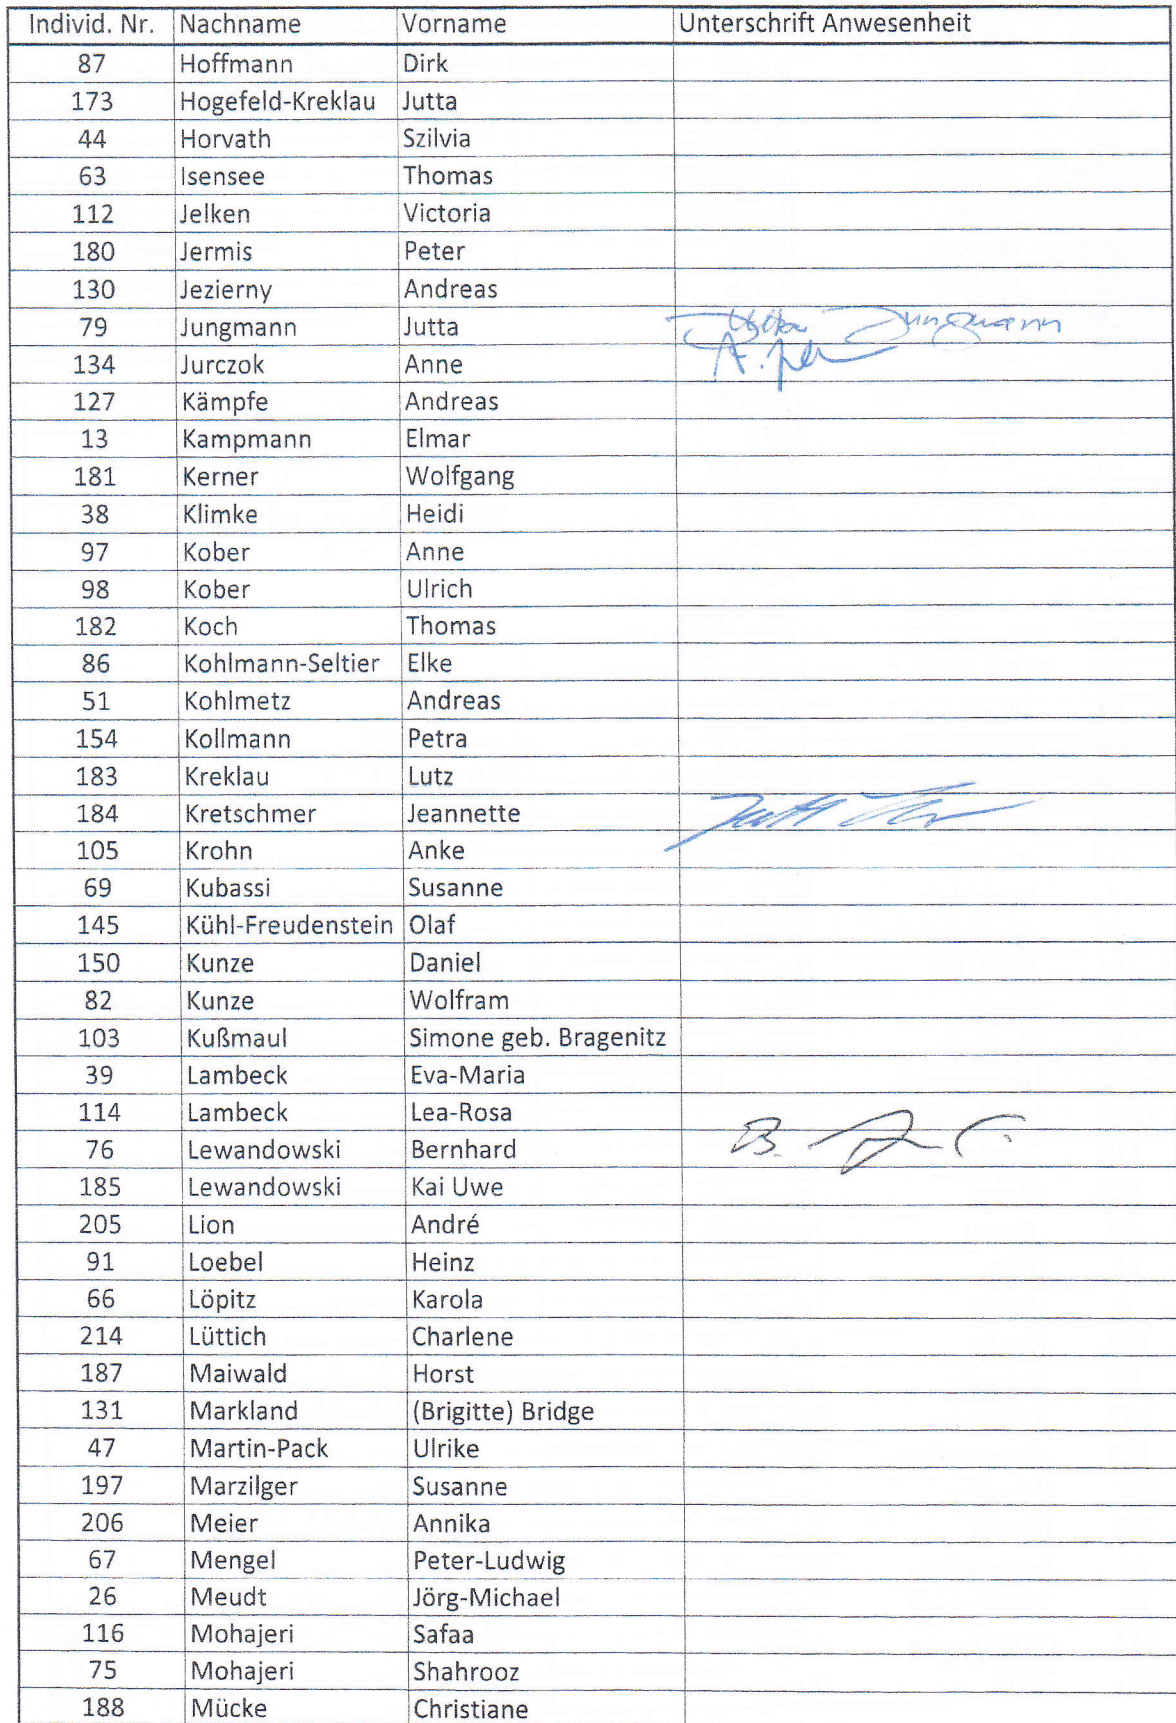 Individ. Nr. Nachname Vorname Unterschrift Anwesenheit
87 Hoffmann Dirk
173 Hogefeld-Kreklau Jutta
44 Horvath Szilvia
63 Isensee Thomas
112 Jelken Victoria
180 Jermis Peter
130 Jezierny Andreas
79 Jungmann Jutta Jutta Jungmann
134 Jurczok Anne A.
127 Kämpfe Andreas
13 Kampmann Elmar
181 Kerner Wolfgang
38 Klimke Heidi
97 Kober Anne
98 Kober Ulrich
182 Koch Thomas
86 Kohlmann-Seltier Elke
51 Kohlmetz Andreas
154 Kollmann Petra
183 Kreklau Lutz
184 Kretschmer Jeannette
105 Krohn Anke
69 Kubassi Susanne
145 Kühl-Freudenstein Olaf
150 Kunze Daniel
82 Kunze Wolfram
103 Kußmaul Simone geb. Bragenitz
39 Lambeck Eva-Maria
114 Lambeck Lea-Rosa
76 Lewandowski Bernhard B.
185 Lewandowski Kai Uwe
205 Lion André
91 Loebel Heinz
66 Löpitz Karola
214 Lüttich Charlene
187 Maiwald Horst
131 Markland (Brigitte) Bridge
47 Martin-Pack Ulrike
197 Marzilger Susanne
206 Meier Annika
67 Mengel Peter-Ludwig
26 Meudt Jörg-Michael
116 Mohajeri Safaa
75 Mohajeri Shahrooz
188 Mücke Christiane